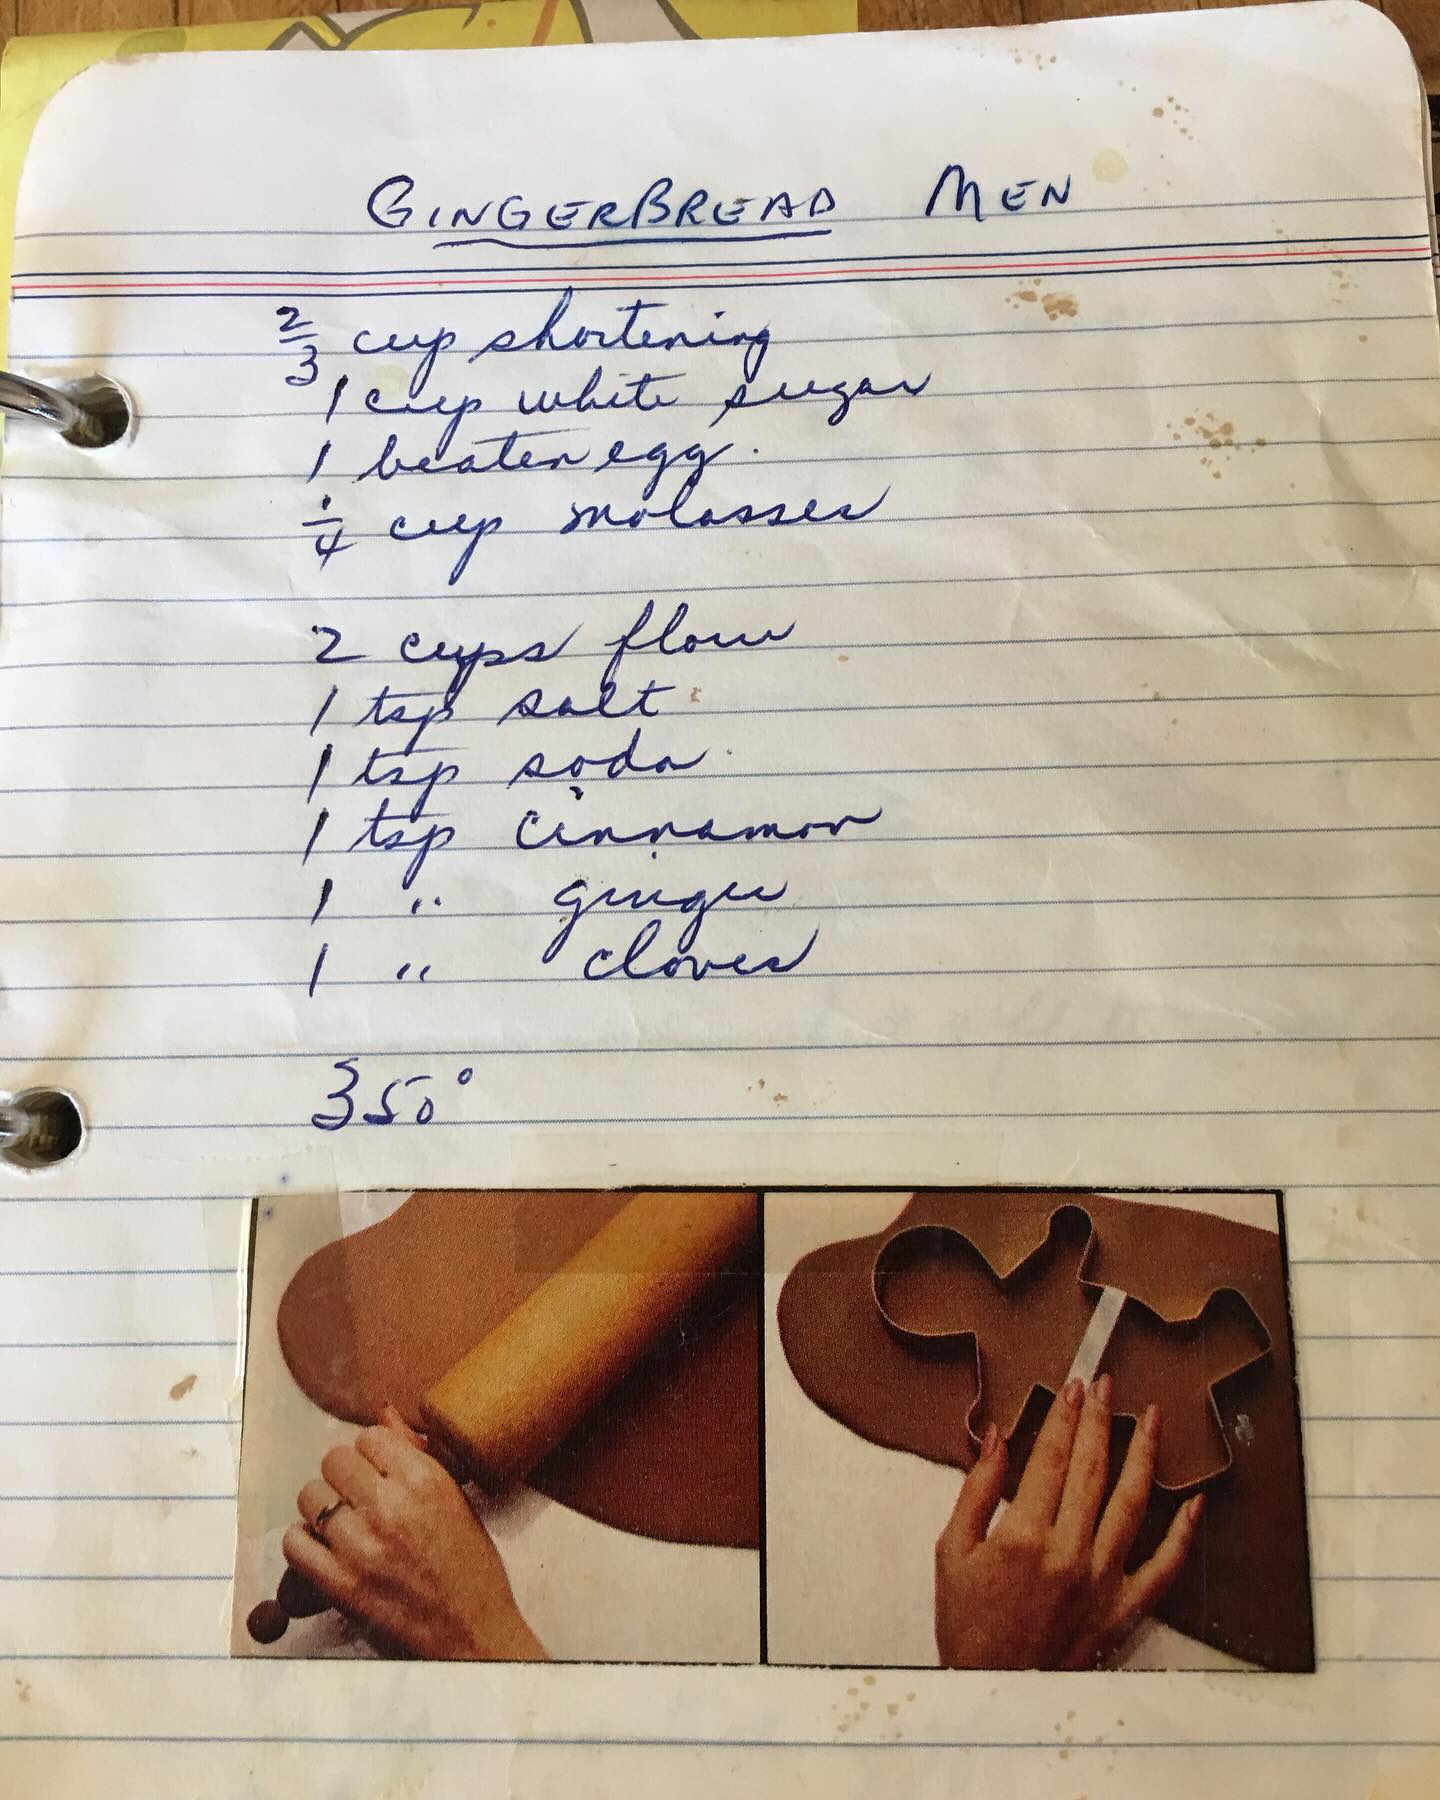 GINGERBREAD MEN
2/3 cup shortening
1 cup white sugar
1 beaten egg.
1/4 cup molasses
2 cups flour
1 tsp salt
1 tsp soda
1 tsp cinnamon
1 " ginger
1 " cloves
350°